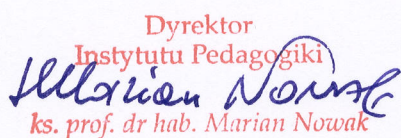 Dyrektor
Instytutu Pedagogiki
Marian Nowak
ks. prof. dr hab. Marian Nowak